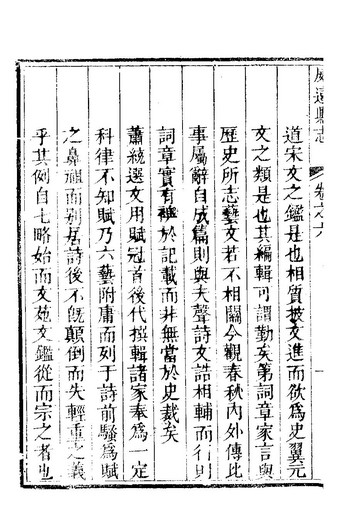 威遠縣志 卷之六
道宋文之鑑是也相質披文進而欲為史翼元
文之類是也其編輯可謂勤矣第詞章家言與
歷史所志藝文若不相關今觀春秋內外傳比
事屬辭自成篇則與夫聲詩文誥相輔而行則
詞章實有補於記載而非無當於史裁矣
蕭統選文用賦冠首後代撰輯諸家奉為一定
科律不知賦乃六藝附庸而列于詩前騷為賦
之鼻祖而別居詩後不旣顛倒而失輕重之義
乎其例自七略始而文苑文鑑從而宗之者也